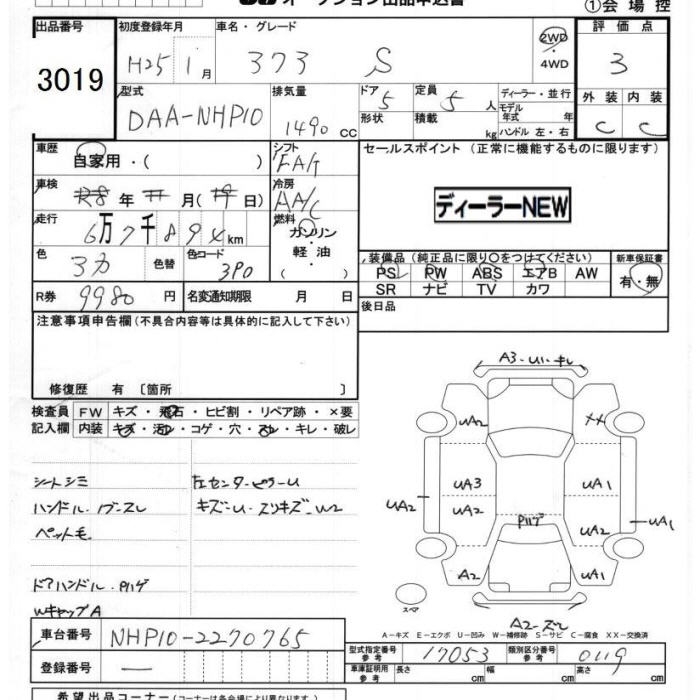 オークション出品申込書
①会場控
出品番号 3019
初度登録年月 H25 1月
車名・グレード 373 S
2WD
4WD
評価点 3
型式 DAA-NHP10
排気量 1490 CC
ドア 5
形状
定員 5 人
積載 kg
ディーラー・並行
モデル年式 年式
ハンドル 左・右
外装 内装
C C
車歴 自家用・( )
シフト FAT
セールスポイント (正常に機能するものに限ります)
車検 年 月( 日)
冷房 AA/C
ディーラーNEW
走行 6万7千894km
燃料 ガソリン
軽油
色 3カ
色替
色コード 3P0
装備品 (純正品に限り○をつけてください)
新車保証書
PS PW ABS エアB AW
SR ナビ TV カワ
有・無
R券 9980 円
名変通知期限 月 日
後日品
注意事項申告欄 (不具合内容等は具体的に記入して下さい)
修復歴 有 [箇所 ]
検査員記入欄
FW キズ・飛石・ヒビ割・リペア跡・×要
内装 キズ・汚レ・コゲ・穴・スレ・キレ・破レ
シートシミ
ハンドル・ノブスレ
ペット毛
ドアハンドル・Pハゲ
WキャップA
左センターピラーU
キズ-U・スリキズ-W2
A3-U1-キレ
UA2
XX
UA3
UA1
UA2
UA2
Pハゲ
UA2
UA1
A2
UA1
スペア
A2-ズレ
A-キズ E-エクボ U-凹み W-補修跡 S-サビ C-腐食 XX-交換済
車台番号 NHP10-2270765
型式指定番号 参考 17053
類別区分番号 参考 0119
登録番号 —
車庫証明用 参考 長さ cm 幅 cm 高さ cm
希望出品コーナー (コーナー名は各会場により異なります)